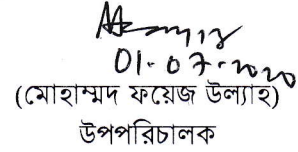 01-07-2020
(মোহাম্মদ ফয়েজ উল্যাহ)
উপপরিচালক